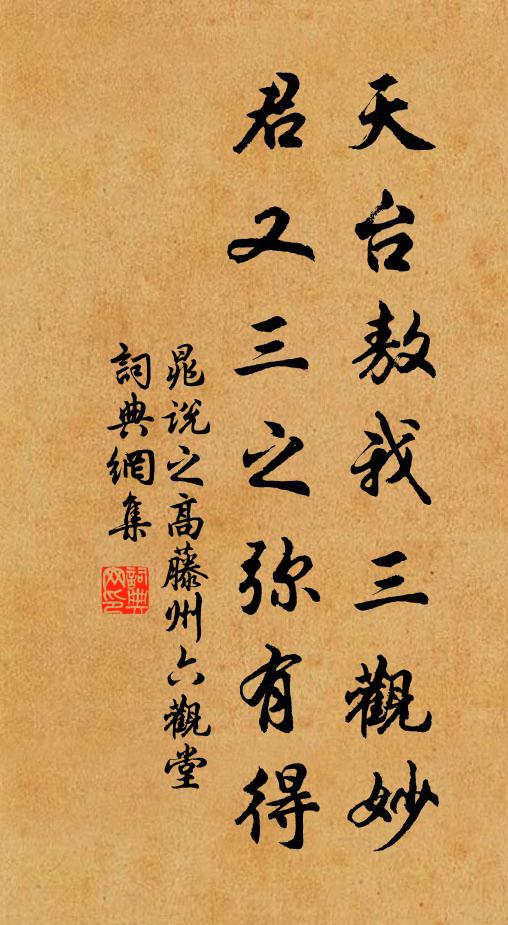 天台敖我三觀妙
君又三之弥有得
晁說之高藤州六觀堂
詞典網集
詞典網印